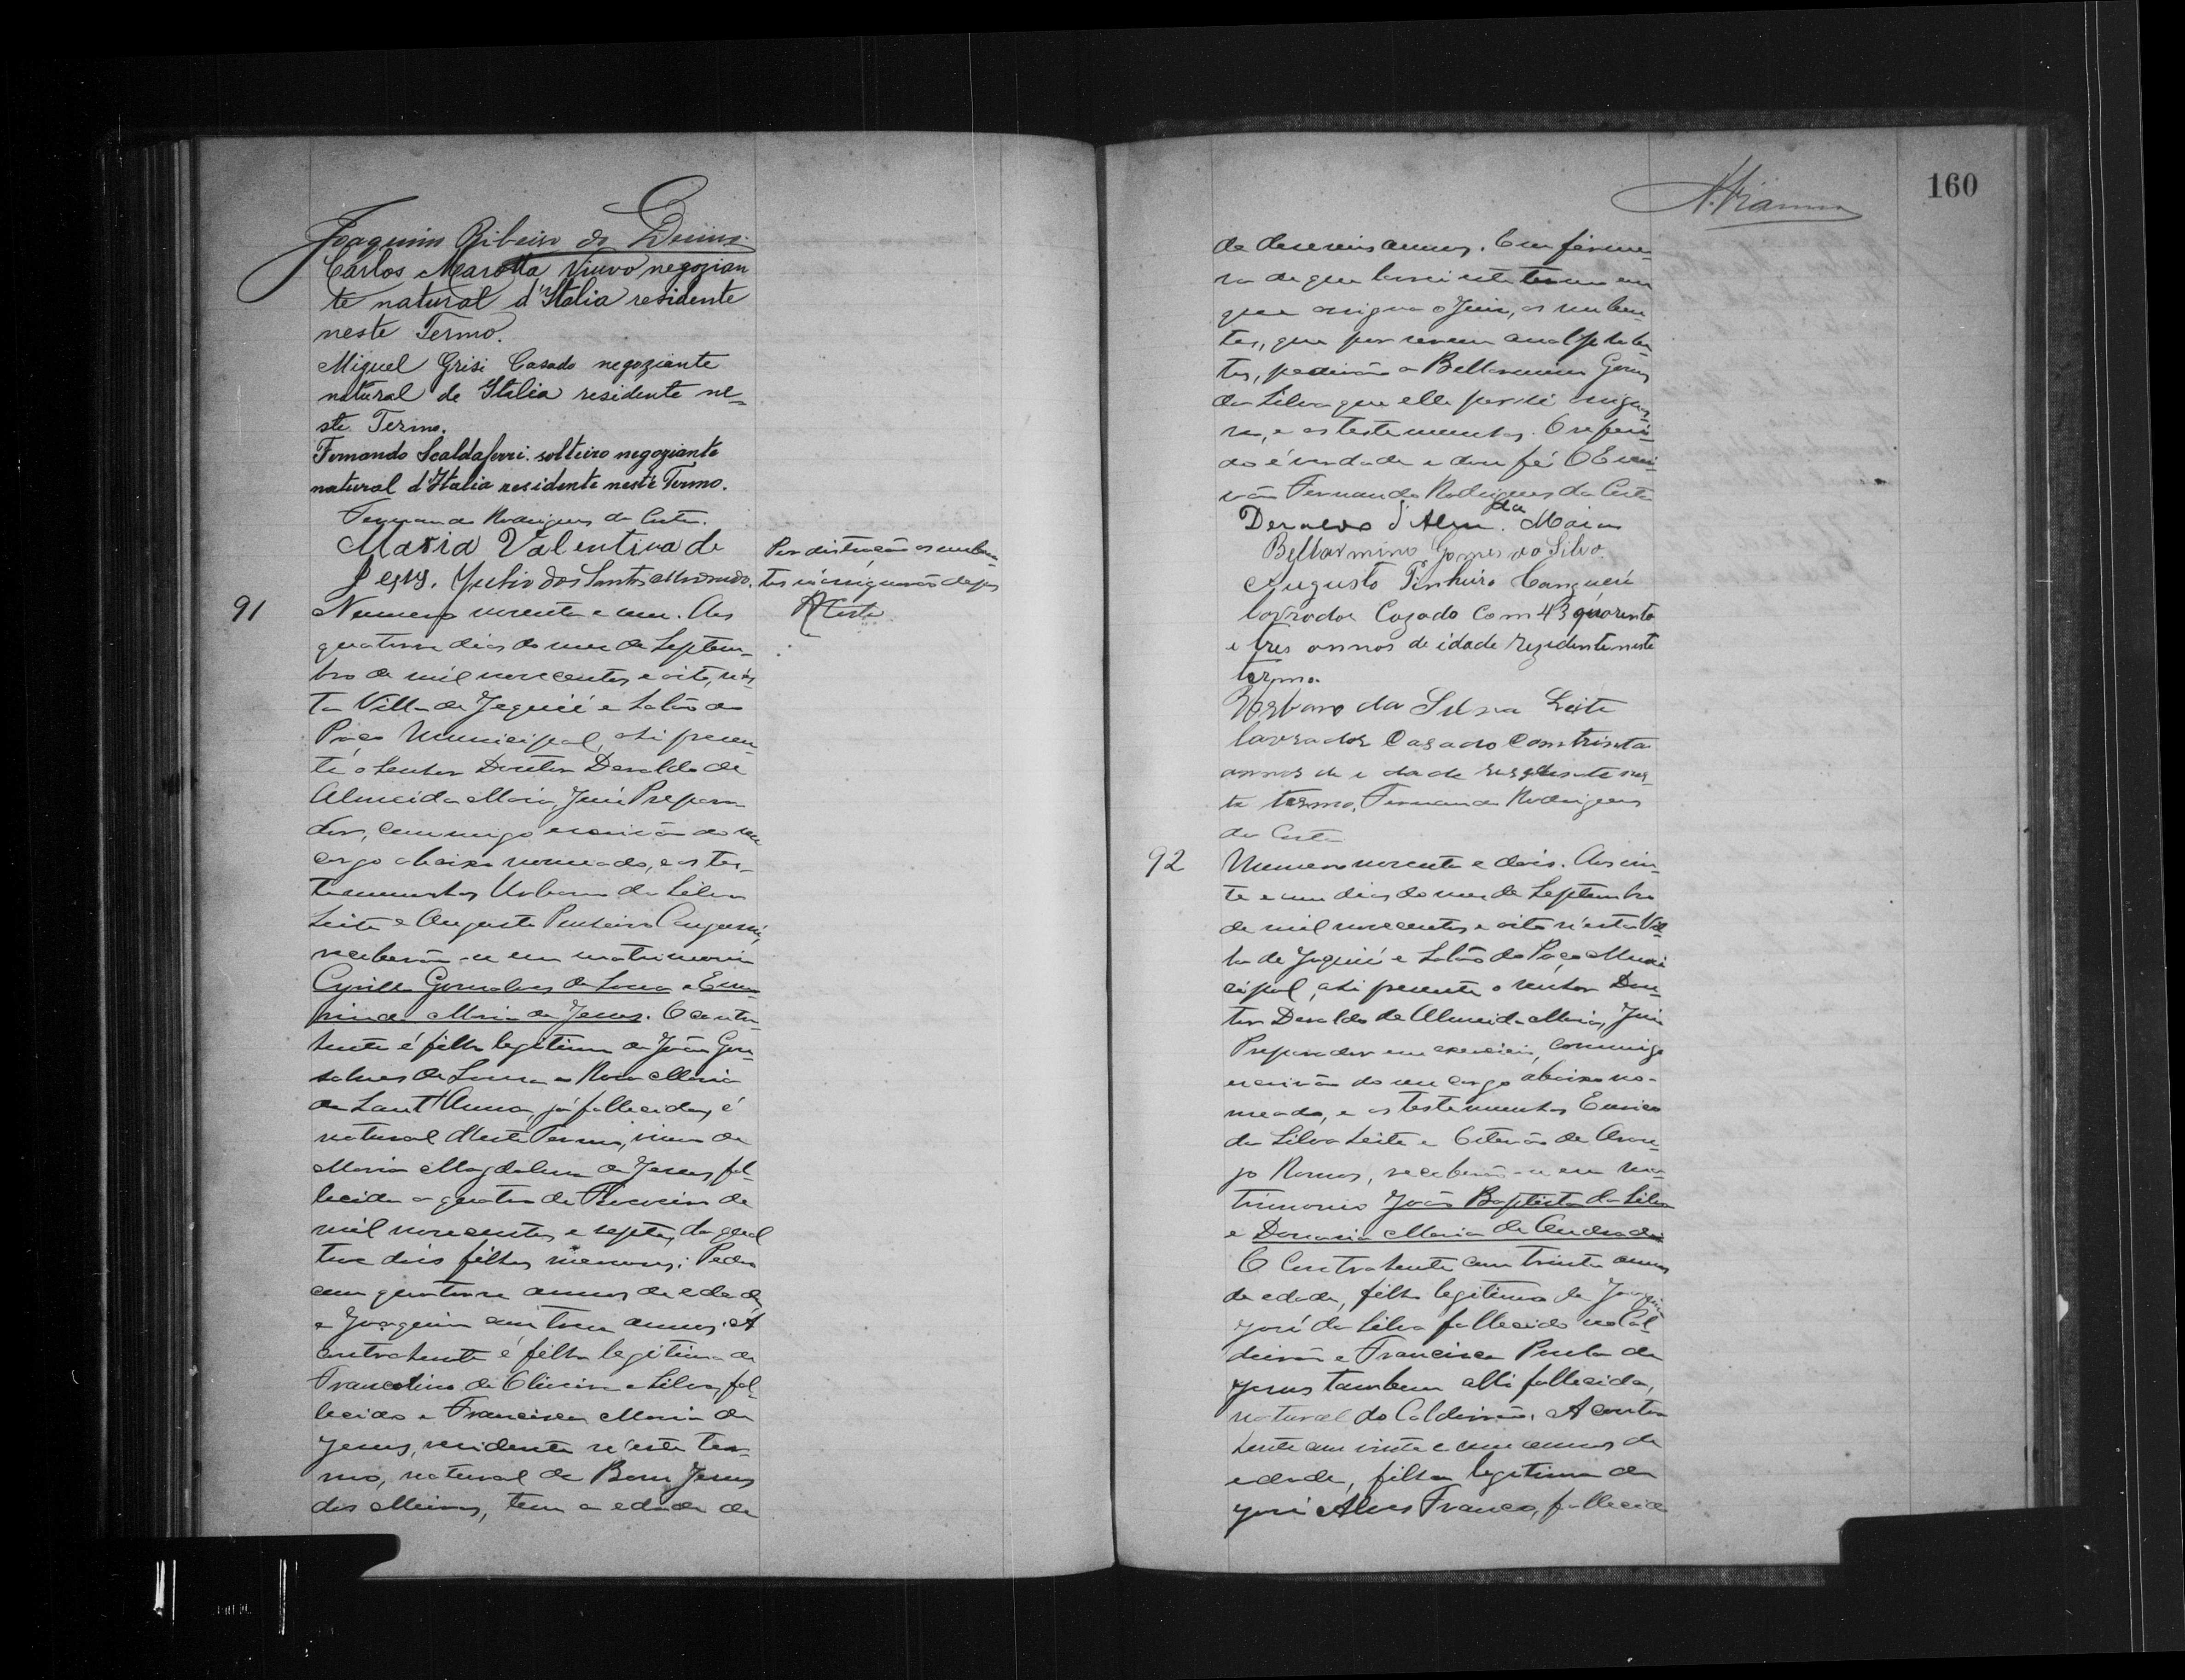 Joaquim Ribeiro de
Carlos Marotta Viuvo negozian
te natural d'Italia residente
neste Termo.
Miguel Grisi Casado negoziante
natural de Italia residente ne-
ste Termo.
Fernando Scaldaferri solteiro negoziante
natural d'Italia residente neste Termo.
Fernando Rodrigues da Costa.
Maria Valentina de
Jesus. Julio dos Santos
Por distração os nuben
tes
91
Numero noventa e um. Aos
quatorze dias do mez de Septem-
bro de mil novecentos e oito, nes-
ta Villa de Jequié e Salão do
Paço Municipal, ahi presen-
te o Senhor Doutor Deraldo de
Almeida Maia, Juiz Prepara-
dor, commigo escrivão do seu
cargo abaixo nomeado, e as tes-
temunhas Urbano da Silva
Leite e Augusto Pinheiro Canguçú,
receberão-se em matrimonio
Cyrillo Gonsalves de Souza e
Maria de Jesus. O contra-
hente é filho legitimo de João Gon-
salves de Souza e Rosa Maria
de Sant'Anna, já fallecidos, é
natural deste Termo, viuvo de
Maria Magdalena de Jesus, fal-
lecida a quatro de Fevereiro de
mil novecentos e septe, da qual
teve dois filhos menores: Pedro
com quatorze annos de edade,
e Joaquim com treze annos. A
contrahente é filha legitima de
de Oliveira e Silva, fal-
lecido e Francisca Maria de
Jesus, residente n'este ter-
mo, natural de Bom Jesus
dos Meiras, tem a edade de
160
de deseseis annos. Em firme-
sa do que lavrei este termo em
que assigna o Juiz, os nuben-
tes, que por serem analphabe-
tos, pedirão a Bellarmino Gomes
da Silva que elle por si assignas-
se, e as testemunhas. O referi-
do é verdade e dou fé. O Escri-
vão Fernando Rodrigues da Costa
Deraldo d'Almda Maia
Bellarmino Gomes da Silva.
Augusto Pinheiro Canguçú
lavrador Cazado com 43 quarenta
e tres annos de idade rezidente neste
termo
Urbano da Silva Leite
lavrador Casado com trinta
annos de idade rezidente nes
te termo. Fernando Rodrigues
da Costa
92
Numero noventa e dois. Aos vin-
te e um dias do mez de Septembro
de mil novecentos e oito n'esta Vil-
la de Jequié e Salão do Paço Muni
cipal, ahi presente o senhor Dou-
tor Deraldo de Almeida Maia, Juiz
Preparador em exercicio, commigo
escrivão do seu cargo abaixo no-
meado, e as testemunhas Enrico
da Silva Leite e de Arau-
jo Ramos, receberão-se em ma-
trimonio João Baptista da Silva
e Donaria Maria de Andrade
O Contrahente com trinta annos
de edade, filho legitimo de Joaquim
José da Silva fallecido no Cal-
deirão e Francisca Paula de
Jesus tambem alli fallecida,
natural do Caldeirão. A contra
hente com vinte e um annos de
edade, filha legitima de
José Alves Franco, fallecido